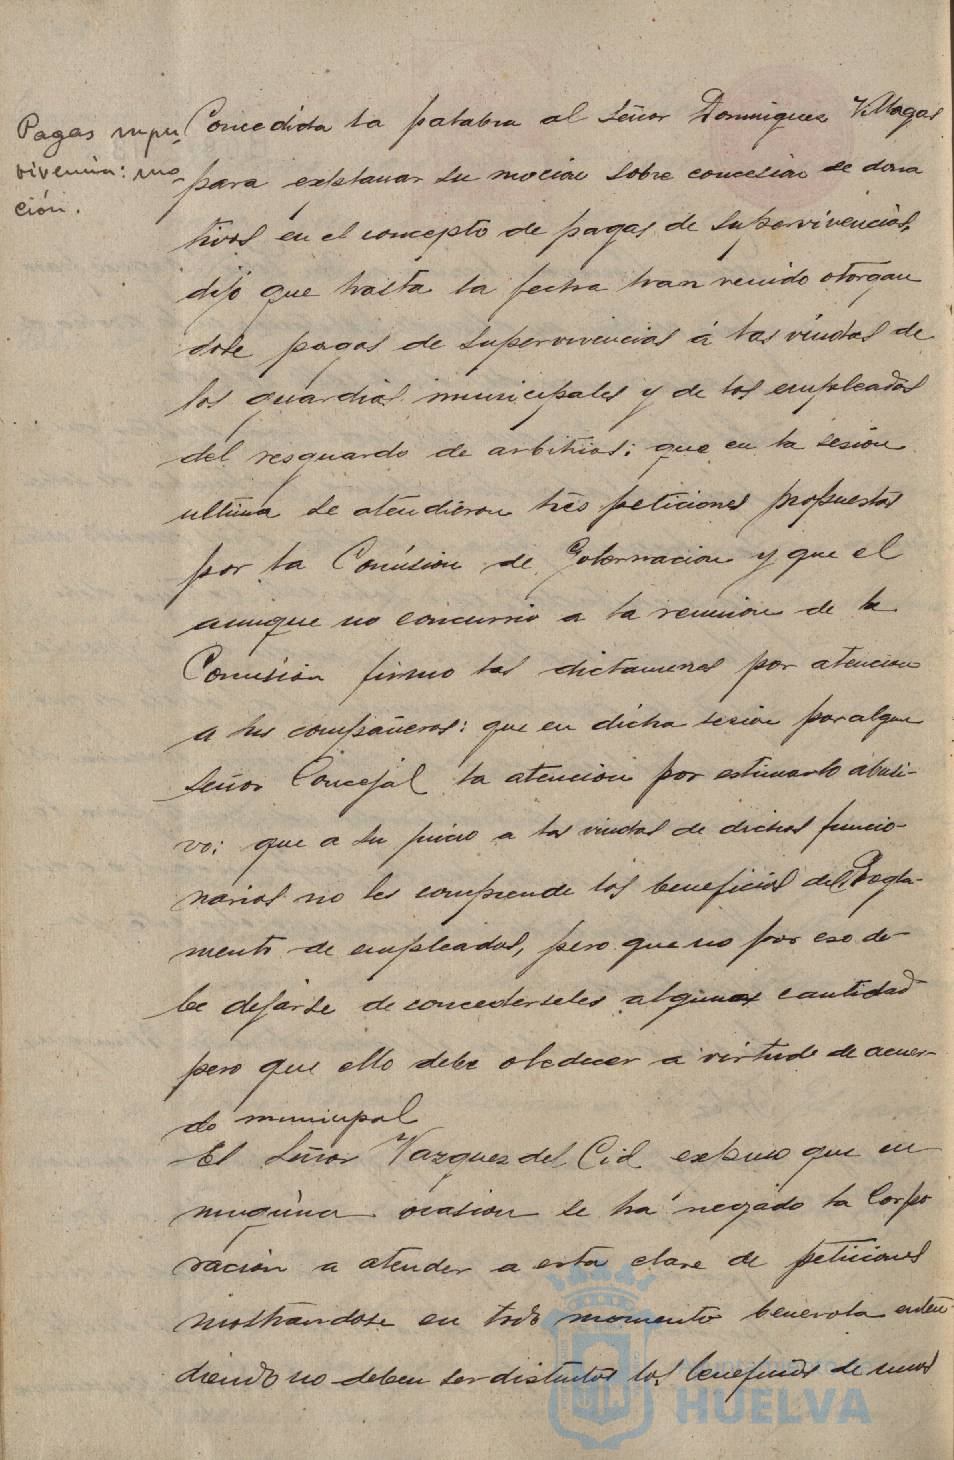 Pagas supervi
vivencia: mo-
ción.
Concedida la palabra al Señor Dominguez Villagas
para explanar su mocion sobre concesion de dona
tivos en el concepto de pagas de supervivencias,
dijo que hasta la fecha han venido otorgan
dose pagas de supervivencias á las viudas de
los guardias municipales y de los empleados
del resguardo de arbitrios; que en la sesión
ultima se atendieron tres peticiones propuestas
por la Comision de Gobernacion y que el
aunque no concurrio a la reunion de la
Comisión firmo los dictamenes por atencion
a sus compañeros: que en dicha sesion por algun
Señor Concejal la atencion por estimarlo abusi-
vo: que a su juicio a las viudas de dichos funcio-
narios no les comprende los beneficios del Regla-
mento de empleados, pero que no por eso de-
be dejarse de concederseles alguna cantidad
pero que ello debe obedecer a virtud de acuer-
do municipal
El Señor Vazquez del Cid expuso que en
ninguna ocasion se ha negado la Corpo
ración a atender a esta clase de peticiones
mostrandose en todo momento benevola enten
diendo no deben ser distintos los beneficios de unos
HUELVA